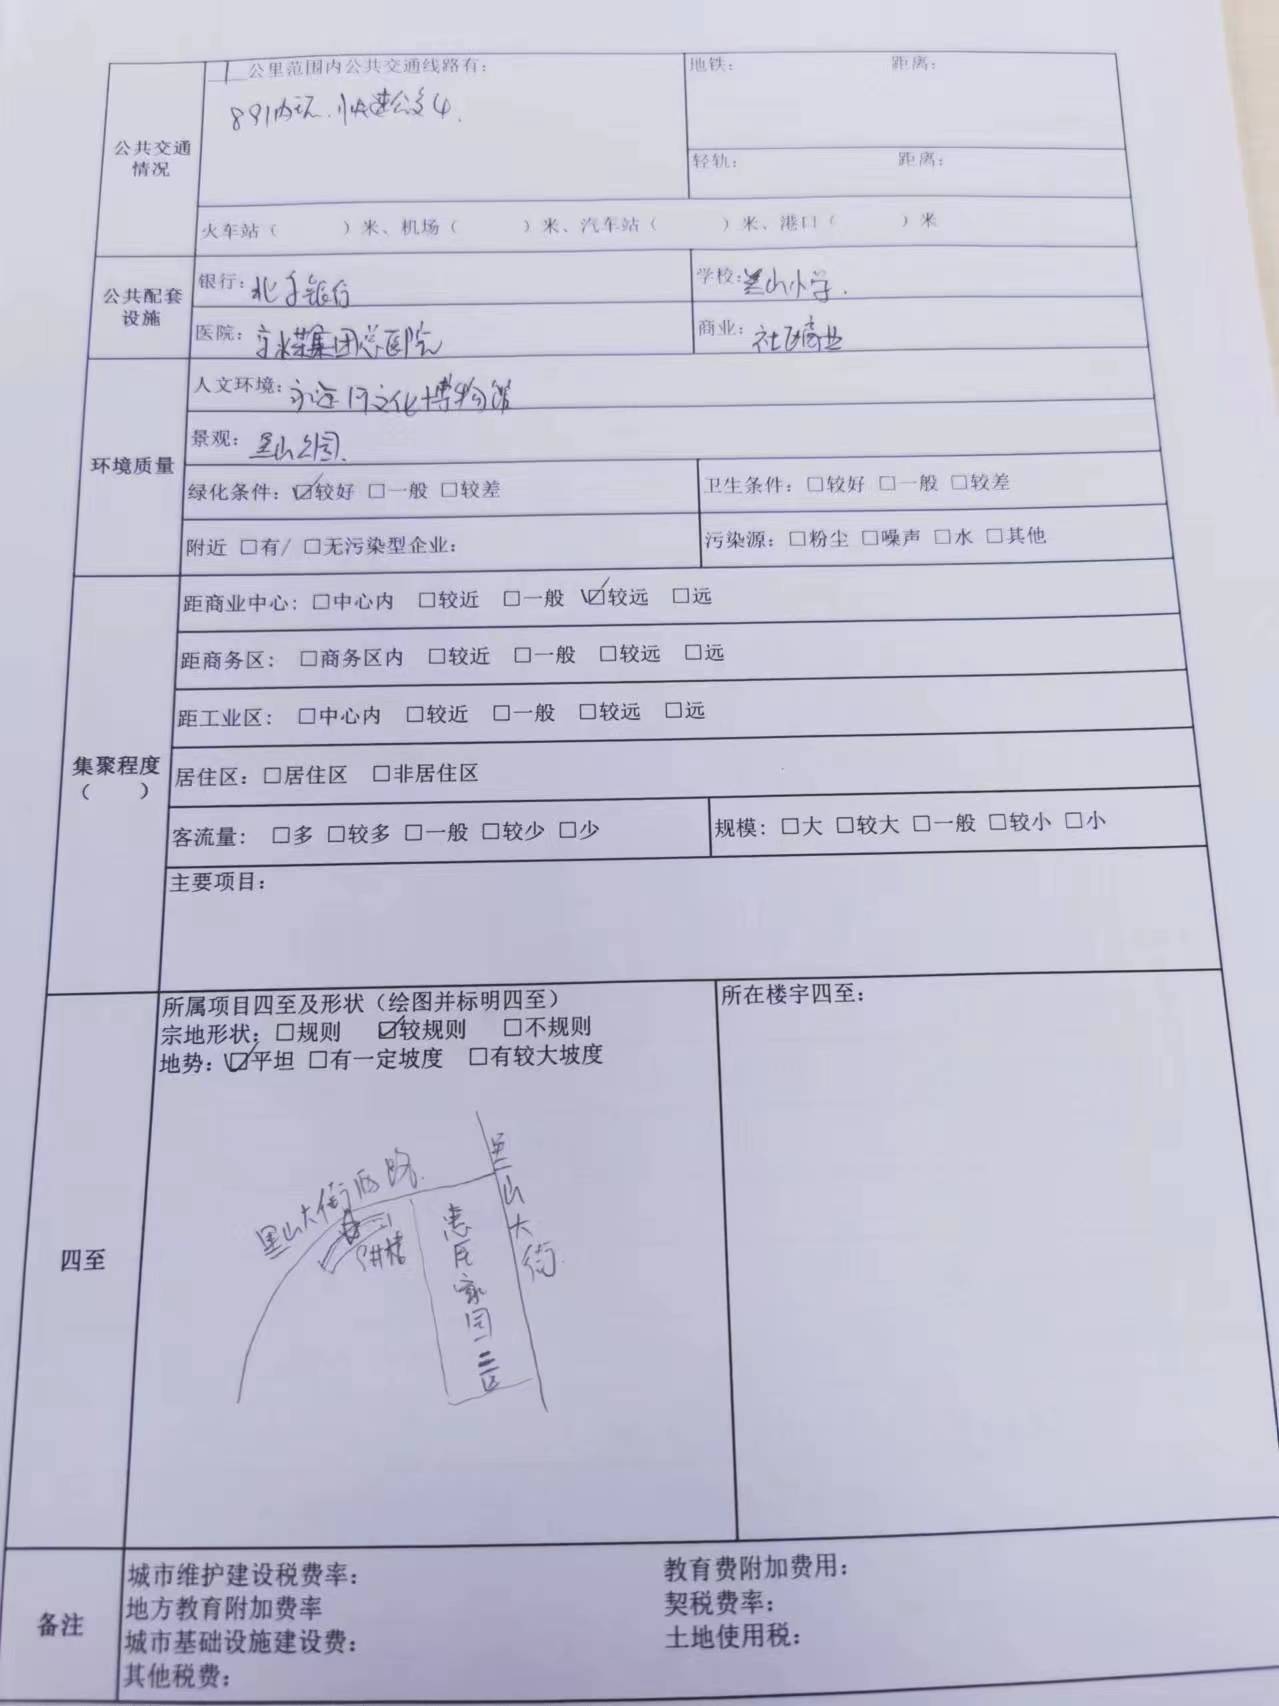 1 公里范围内公共交通线路有：
891内环、快速公交4.
地铁： 距离：
轻轨： 距离：
公共交通
情况
火车站（ ）米、机场（ ）米、汽车站（ ）米、港口（ ）米
公共配套
设施
银行：北京银行
学校：黑山小学.
医院：京煤集团总医院
商业：社区商业
环境质量
人文环境：永定河文化博物馆
景观：黑山公园.
绿化条件：☑较好 □一般 □较差
卫生条件：□较好 □一般 □较差
附近 □有/ □无污染型企业：
污染源：□粉尘 □噪声 □水 □其他
集聚程度
（ ）
距商业中心：□中心内 □较近 □一般 ☑较远 □远
距商务区： □商务区内 □较近 □一般 □较远 □远
距工业区： □中心内 □较近 □一般 □较远 □远
居住区：□居住区 □非居住区
客流量： □多 □较多 □一般 □较少 □少
规模：□大 □较大 □一般 □较小 □小
主要项目：
四至
所属项目四至及形状（绘图并标明四至）
宗地形状：□规则 ☑较规则 □不规则
地势：☑平坦 □有一定坡度 □有较大坡度
所在楼宇四至：
黑山大街西路
黑山大街
惠民家园一二区
备注
城市维护建设税费率：
教育费附加费用：
地方教育附加费率
契税费率：
城市基础设施建设费：
土地使用税：
其他税费：